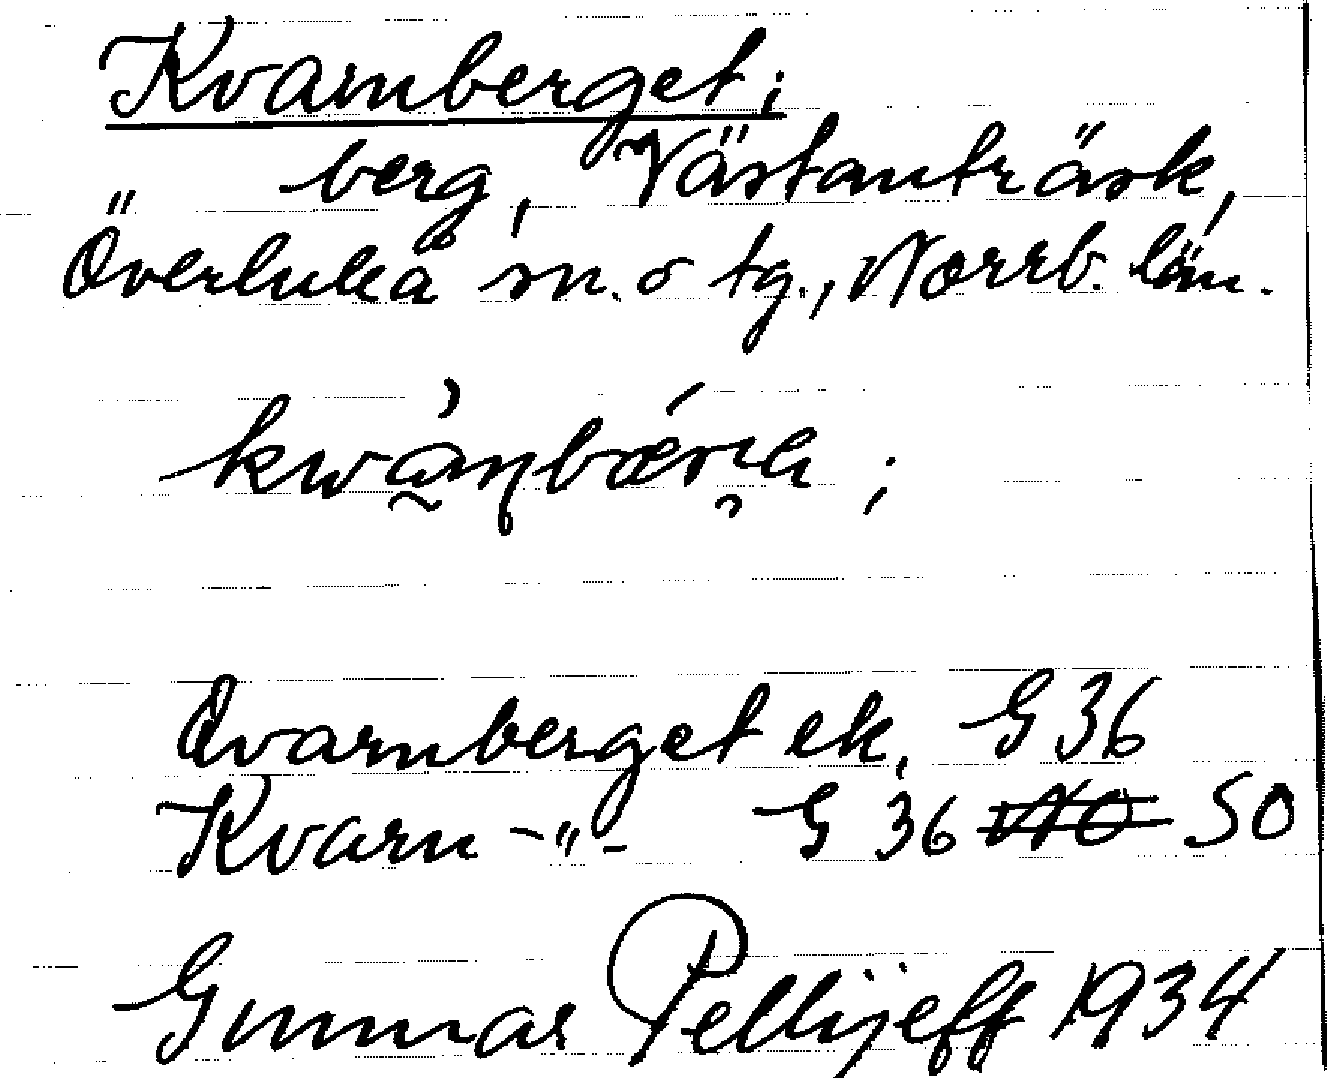 Kvarnberget;
berg, Västanträsk,
Överluleå sn. o tg., Norrb. län.
Qvarnberget ek. G 36
Kvarn -"- G 36 NO SO
Gunnar Pellijeff 1934